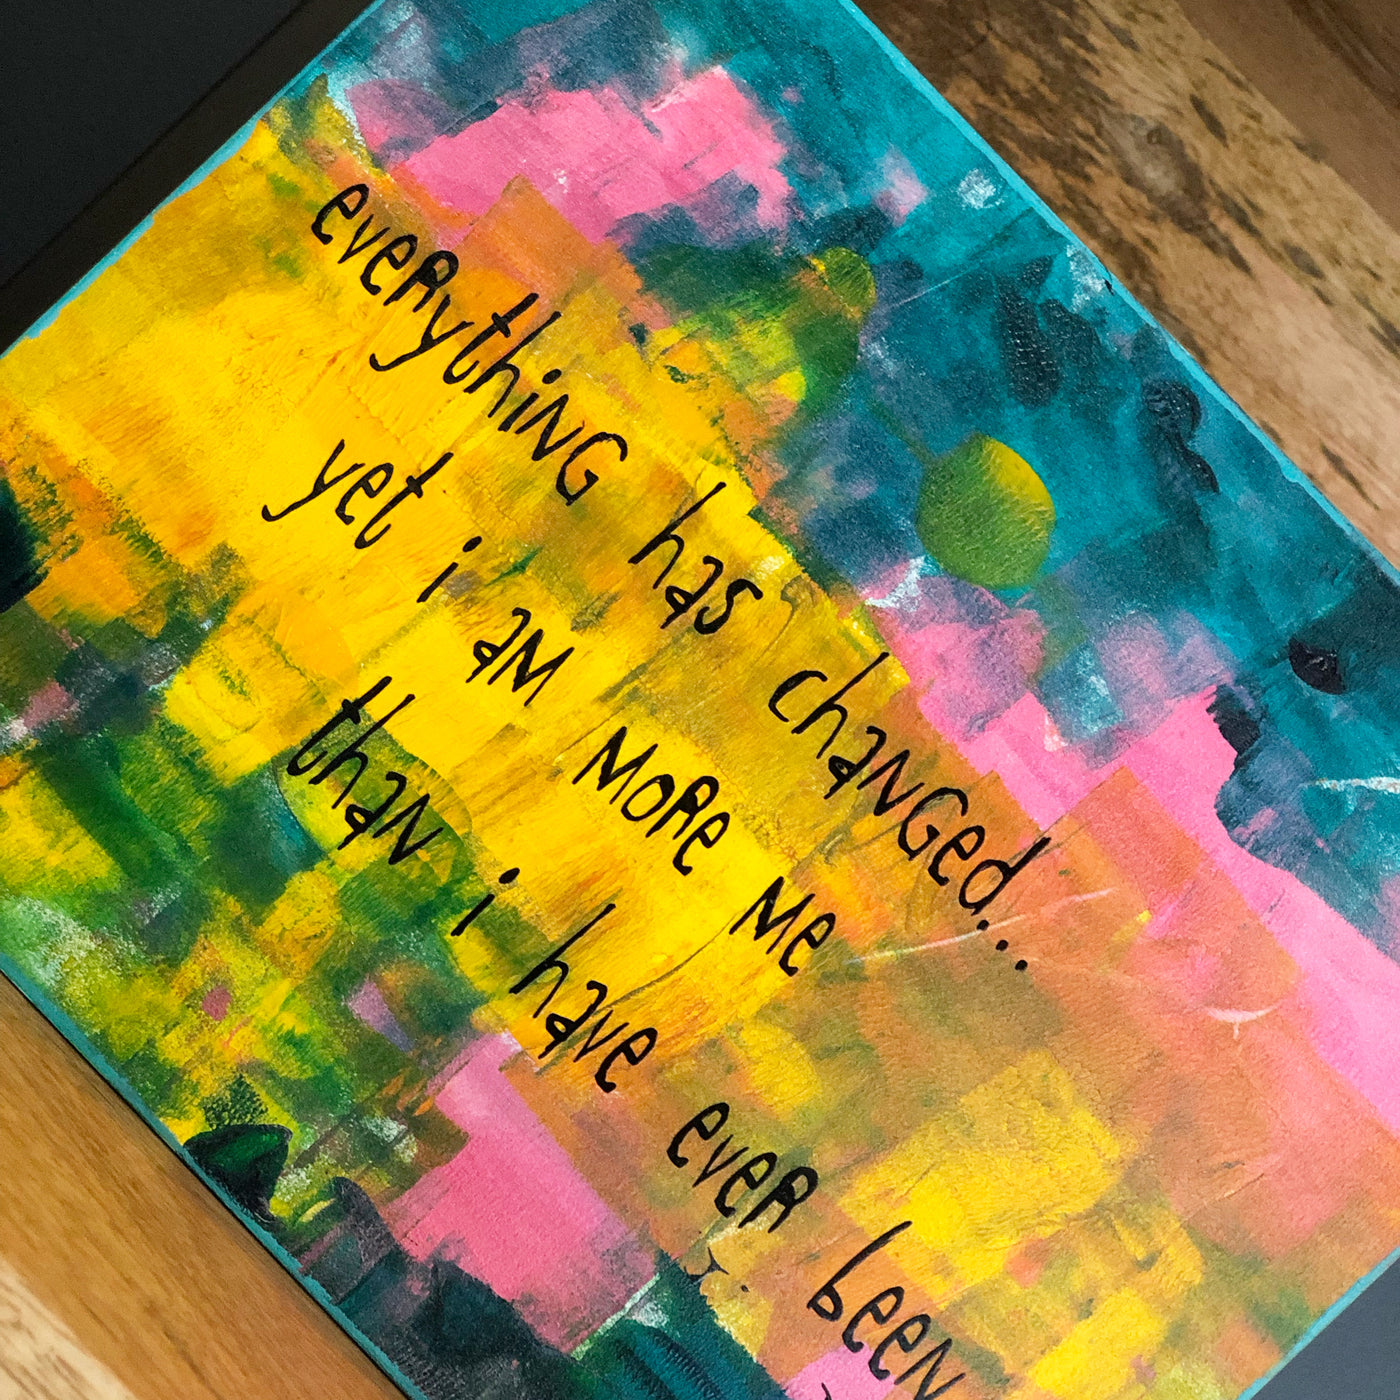 everything has changed...
yet i am more me
than i have ever been